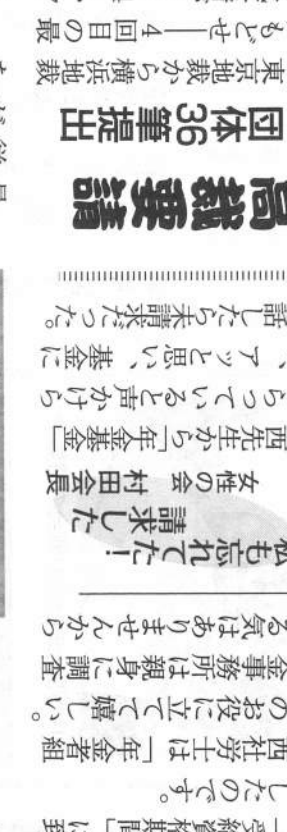 「受給資格期間」に至
したのです。
西社労士は「年金者組
のお役に立てて嬉しい。
金事務所は親身に調査
る気はありませんから
私も忘れてた!
請求した
女性の会 村田会長
西先生から「年金基金」
らっていると声かけら
、アッと思い、基金に
話したら未請求だった。
高裁要請
団体36筆提出
東京地裁から横浜地裁
もどせ――4回目の最